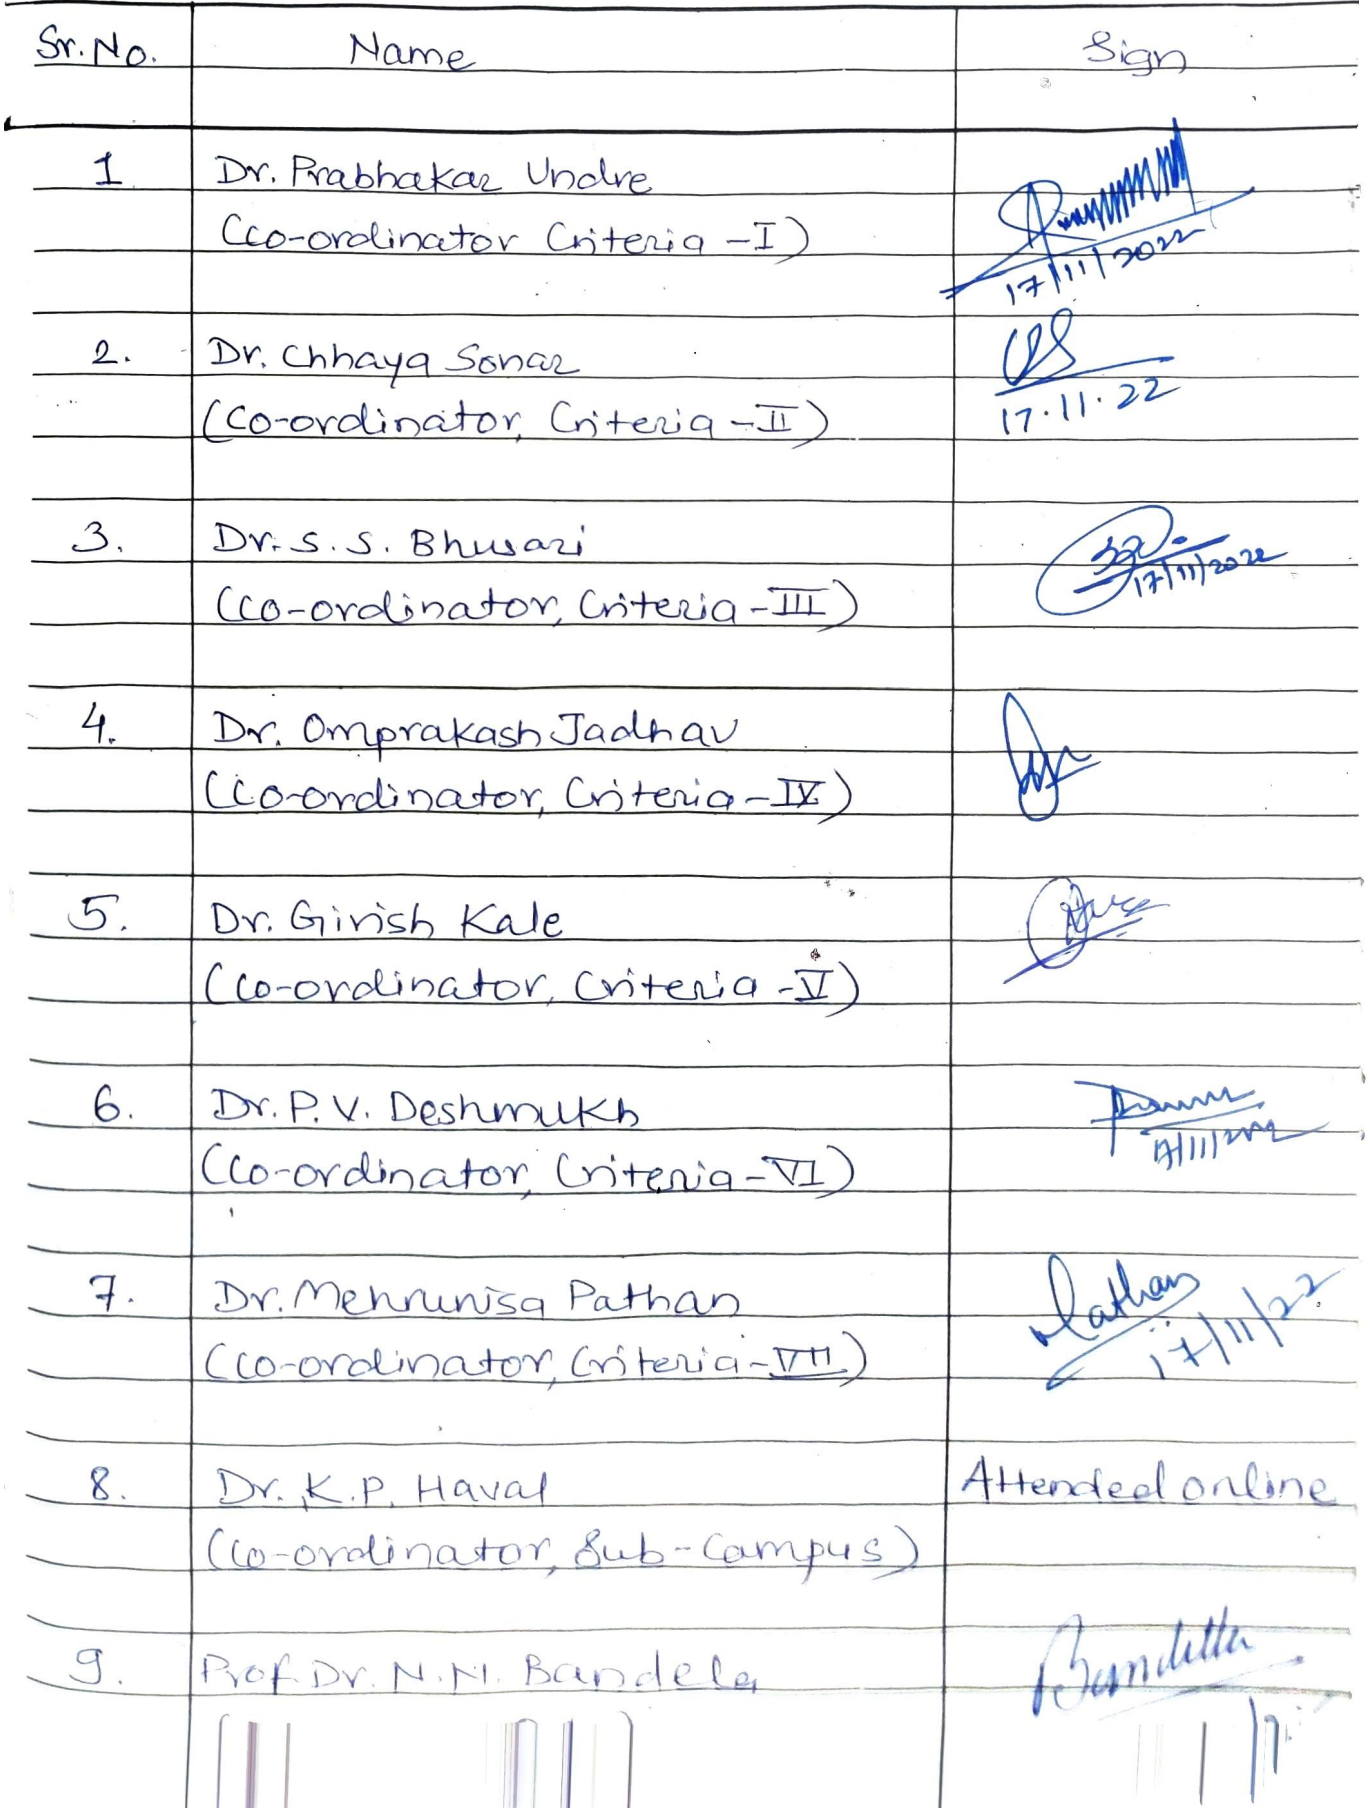 Sr. No. Name Sign
1 Dr. Prabhakar Undre
(Co-ordinator Criteria - I)
17/11/2022
2. Dr. Chhaya Sonar
(Co-ordinator, Criteria - II)
17.11.22
3. Dr. S. S. Bhusari
(Co-ordinator, Criteria - III)
17/11/2022
4. Dr. Omprakash Jadhav
(Co-ordinator, Criteria - IV)
5. Dr. Girish Kale
(Co-ordinator, Criteria - V)
6. Dr. P. V. Deshmukh
17/11/2022
(Co-ordinator, Criteria - VI)
7. Dr. Mehrunisa Pathan Pathan
(Co-ordinator, Criteria - VII) 17/11/22
8. Dr. K. P. Haval Attended online
(Co-ordinator, Sub-Campus)
9. Prof. Dr. N. N. Bandela